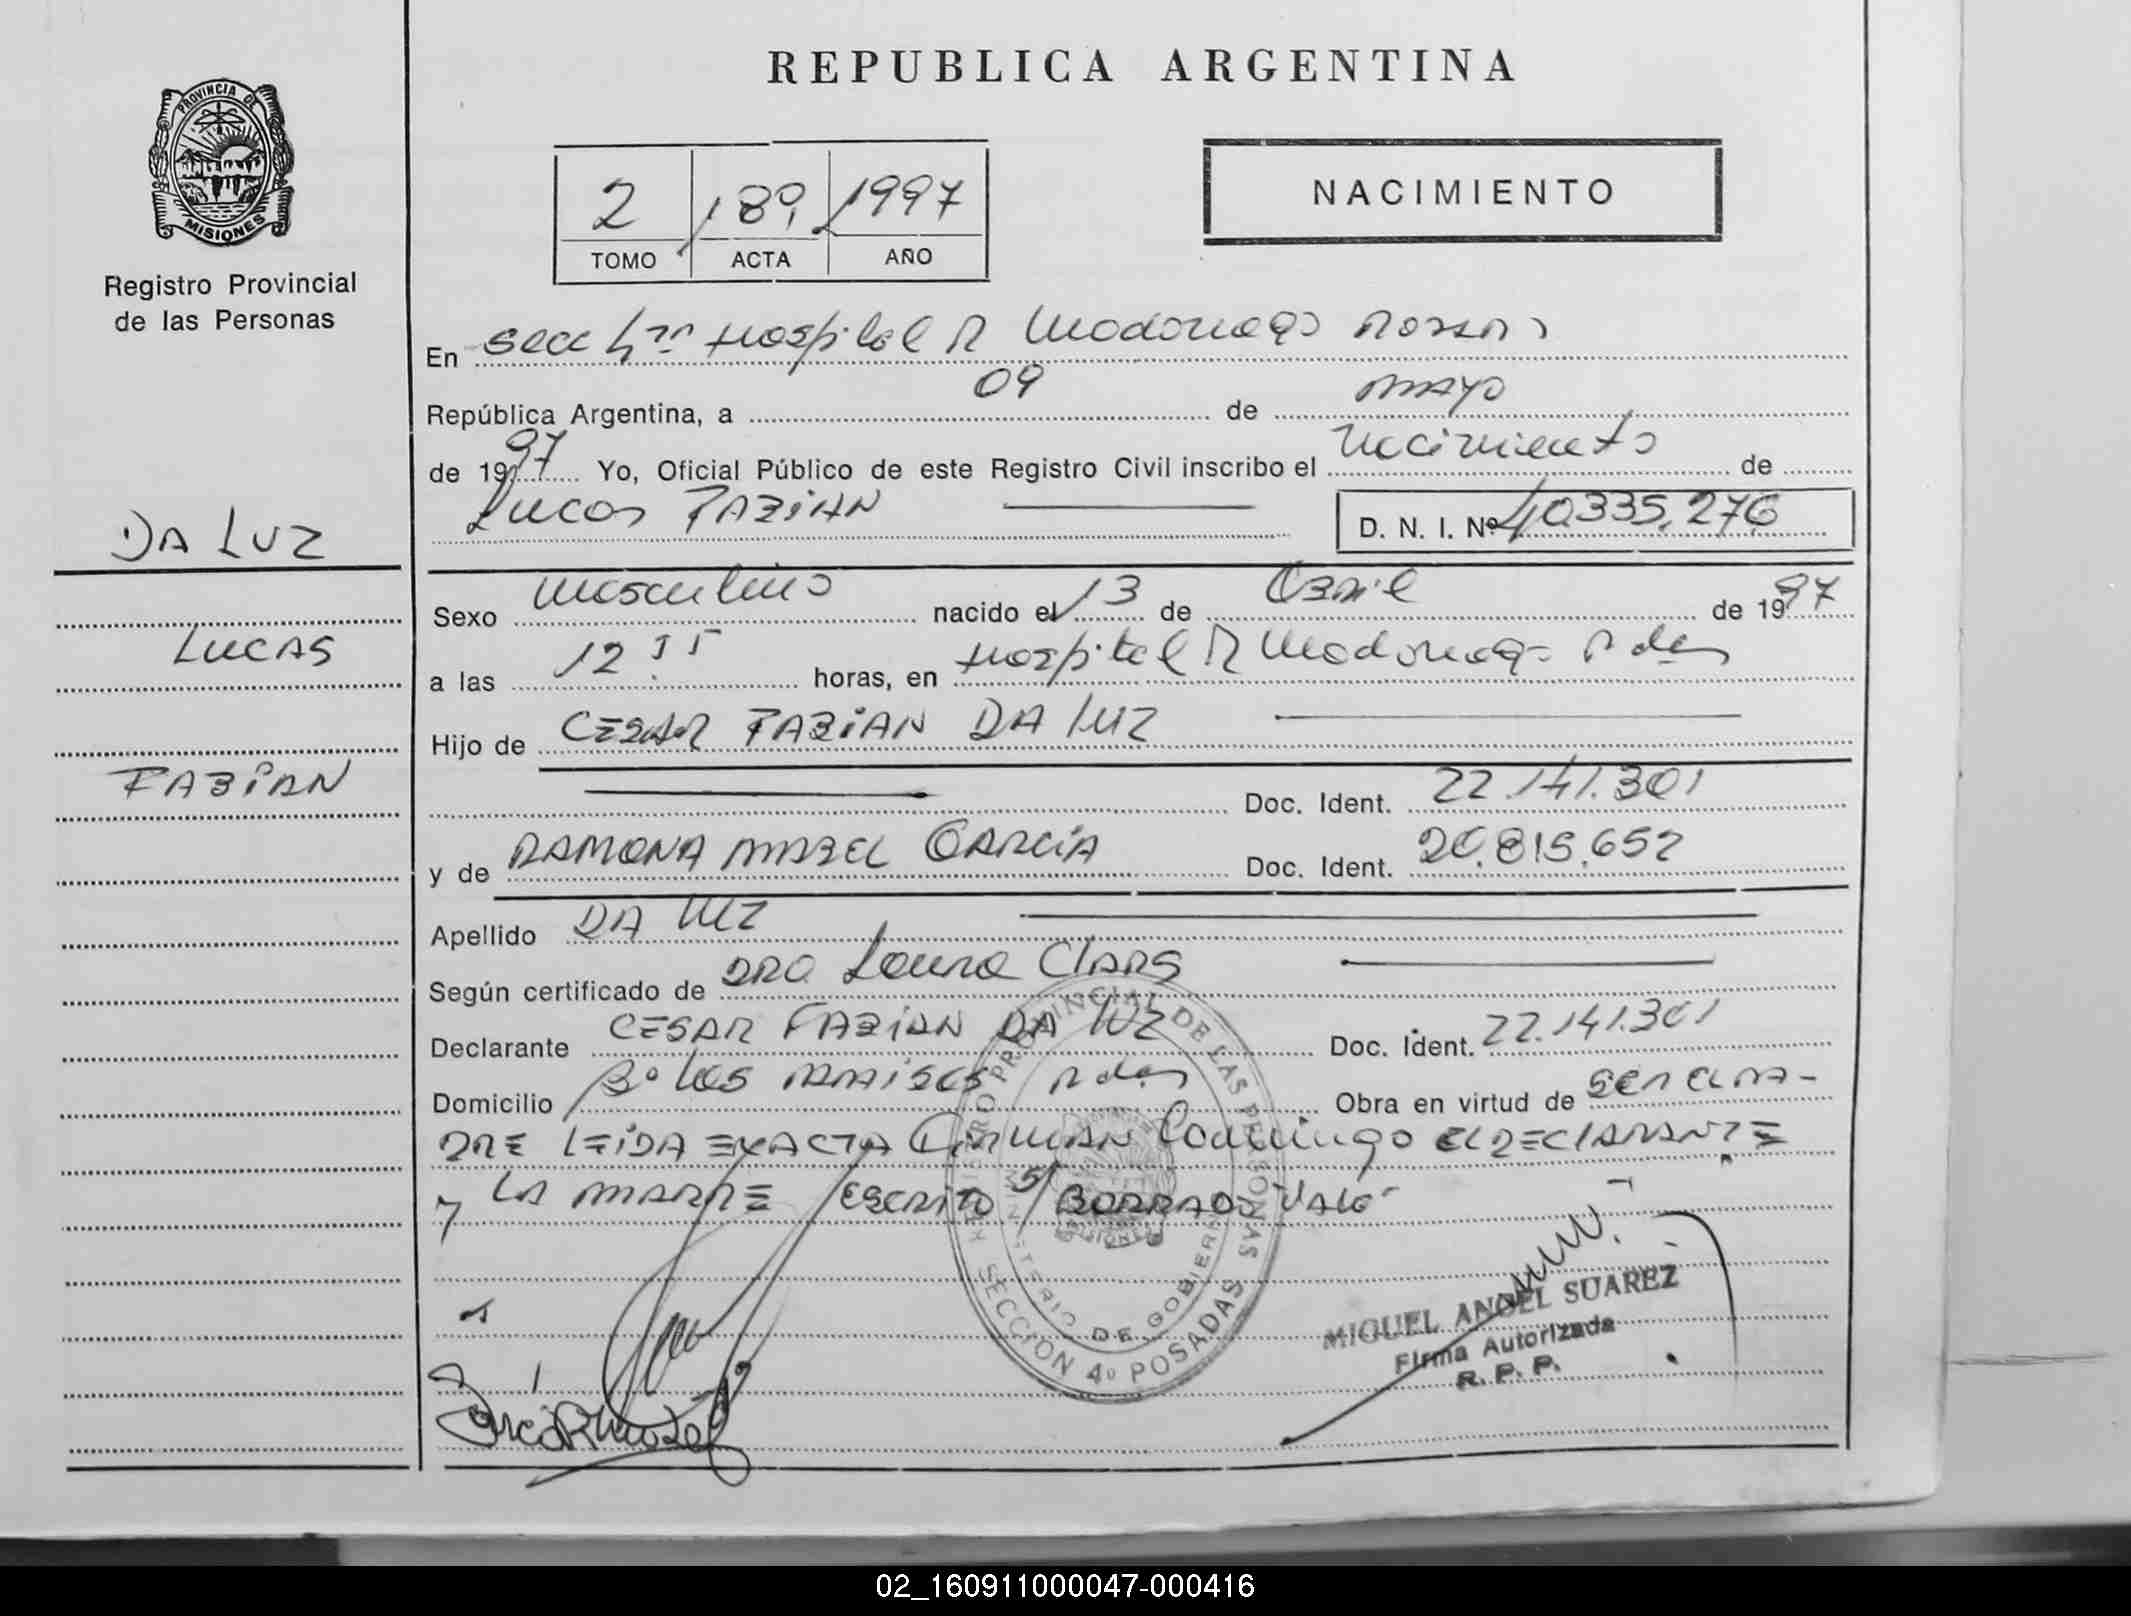 REPUBLICA ARGENTINA
PROVINCIA DE MISIONES
Registro Provincial
de las Personas
2 189 1997
TOMO ACTA AÑO
NACIMIENTO
En Secc 4ta Hospital R Madariaga
República Argentina, a 09 de mayo
de 1997 Yo, Oficial Público de este Registro Civil inscribo el nacimiento de
Lucas FABIAN D. N. I. Nº 40.335.276
DA LUZ
LUCAS
FABIAN
Sexo masculino nacido el 13 de Abril de 1997
a las 12 horas, en Hospital R Madariaga Pdas
Hijo de CESAR FABIAN DA LUZ
Doc. Ident. 22.141.301
y de RAMONA MABEL GARCIA Doc. Ident. 20.815.652
Apellido DA LUZ
Según certificado de DRA Laura
Declarante CESAR FABIAN DA LUZ Doc. Ident. 22.141.301
Domicilio Bº LOS Pdas Obra en virtud de SER EL PA-
DRE LEIDA EXACTA FIRMAN Conmigo EL DECLARANTE
y LA MADRE ESCRITO S/ BORRADO VALE
REGISTRO PROVINCIAL DE LAS PERSONAS
MINISTERIO DE GOBIERNO
MISIONES
SECCION 4º POSADAS
MIGUEL ANGEL SUAREZ
Firma Autorizada
R. P. P.
02_160911000047-000416